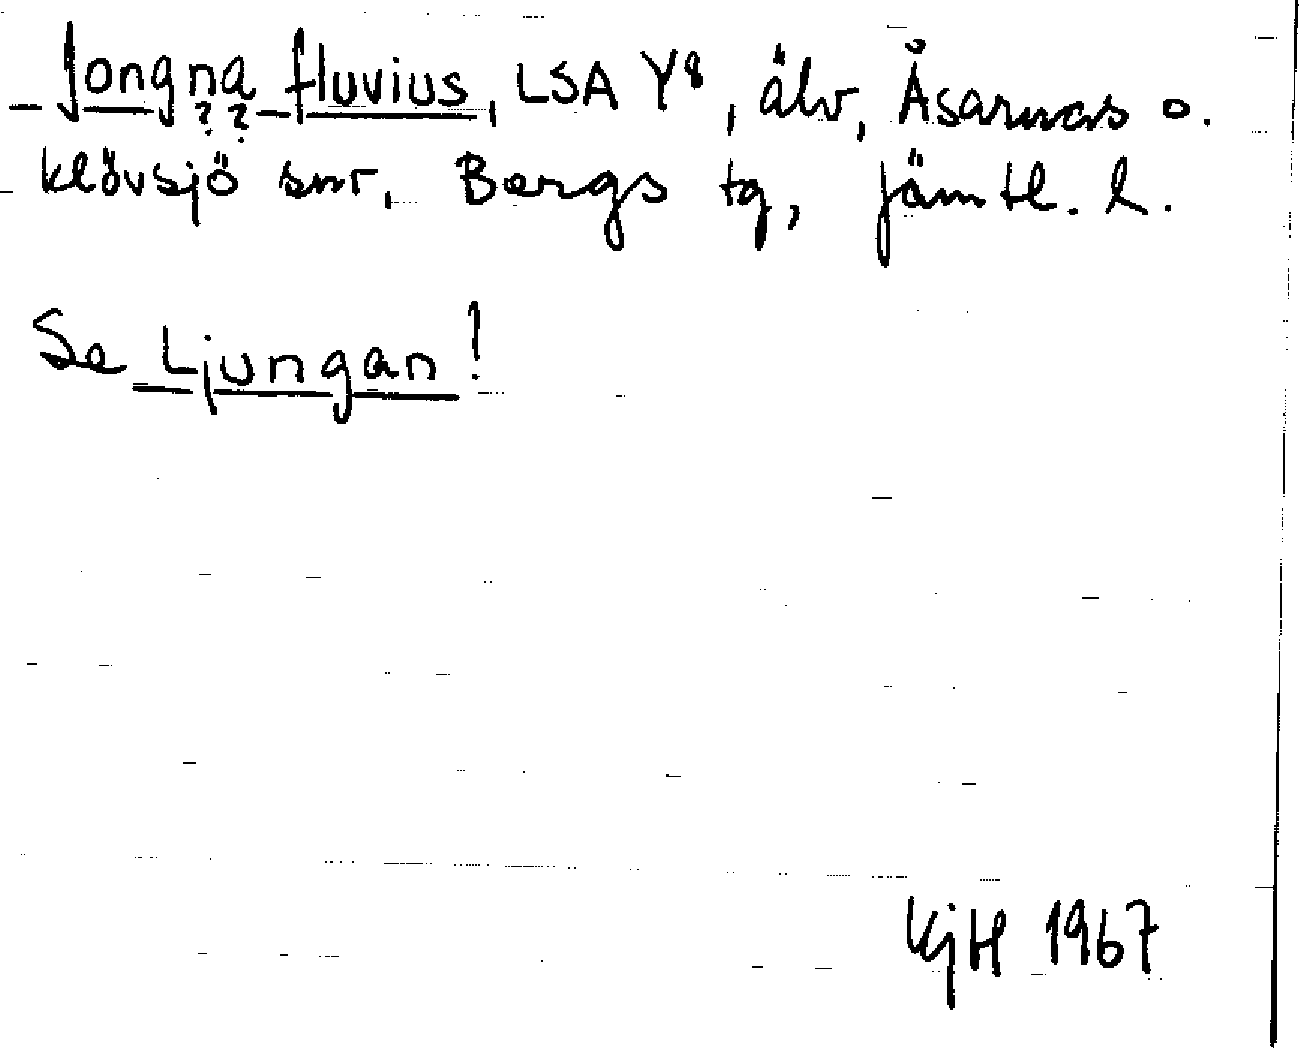 Jongna fluvius, LSA Y8, älv, Åsarnas o.
? ?
Klövsjö snr, Bergs tg, Jämtl. l.
Se Ljungan!
KjH 1967